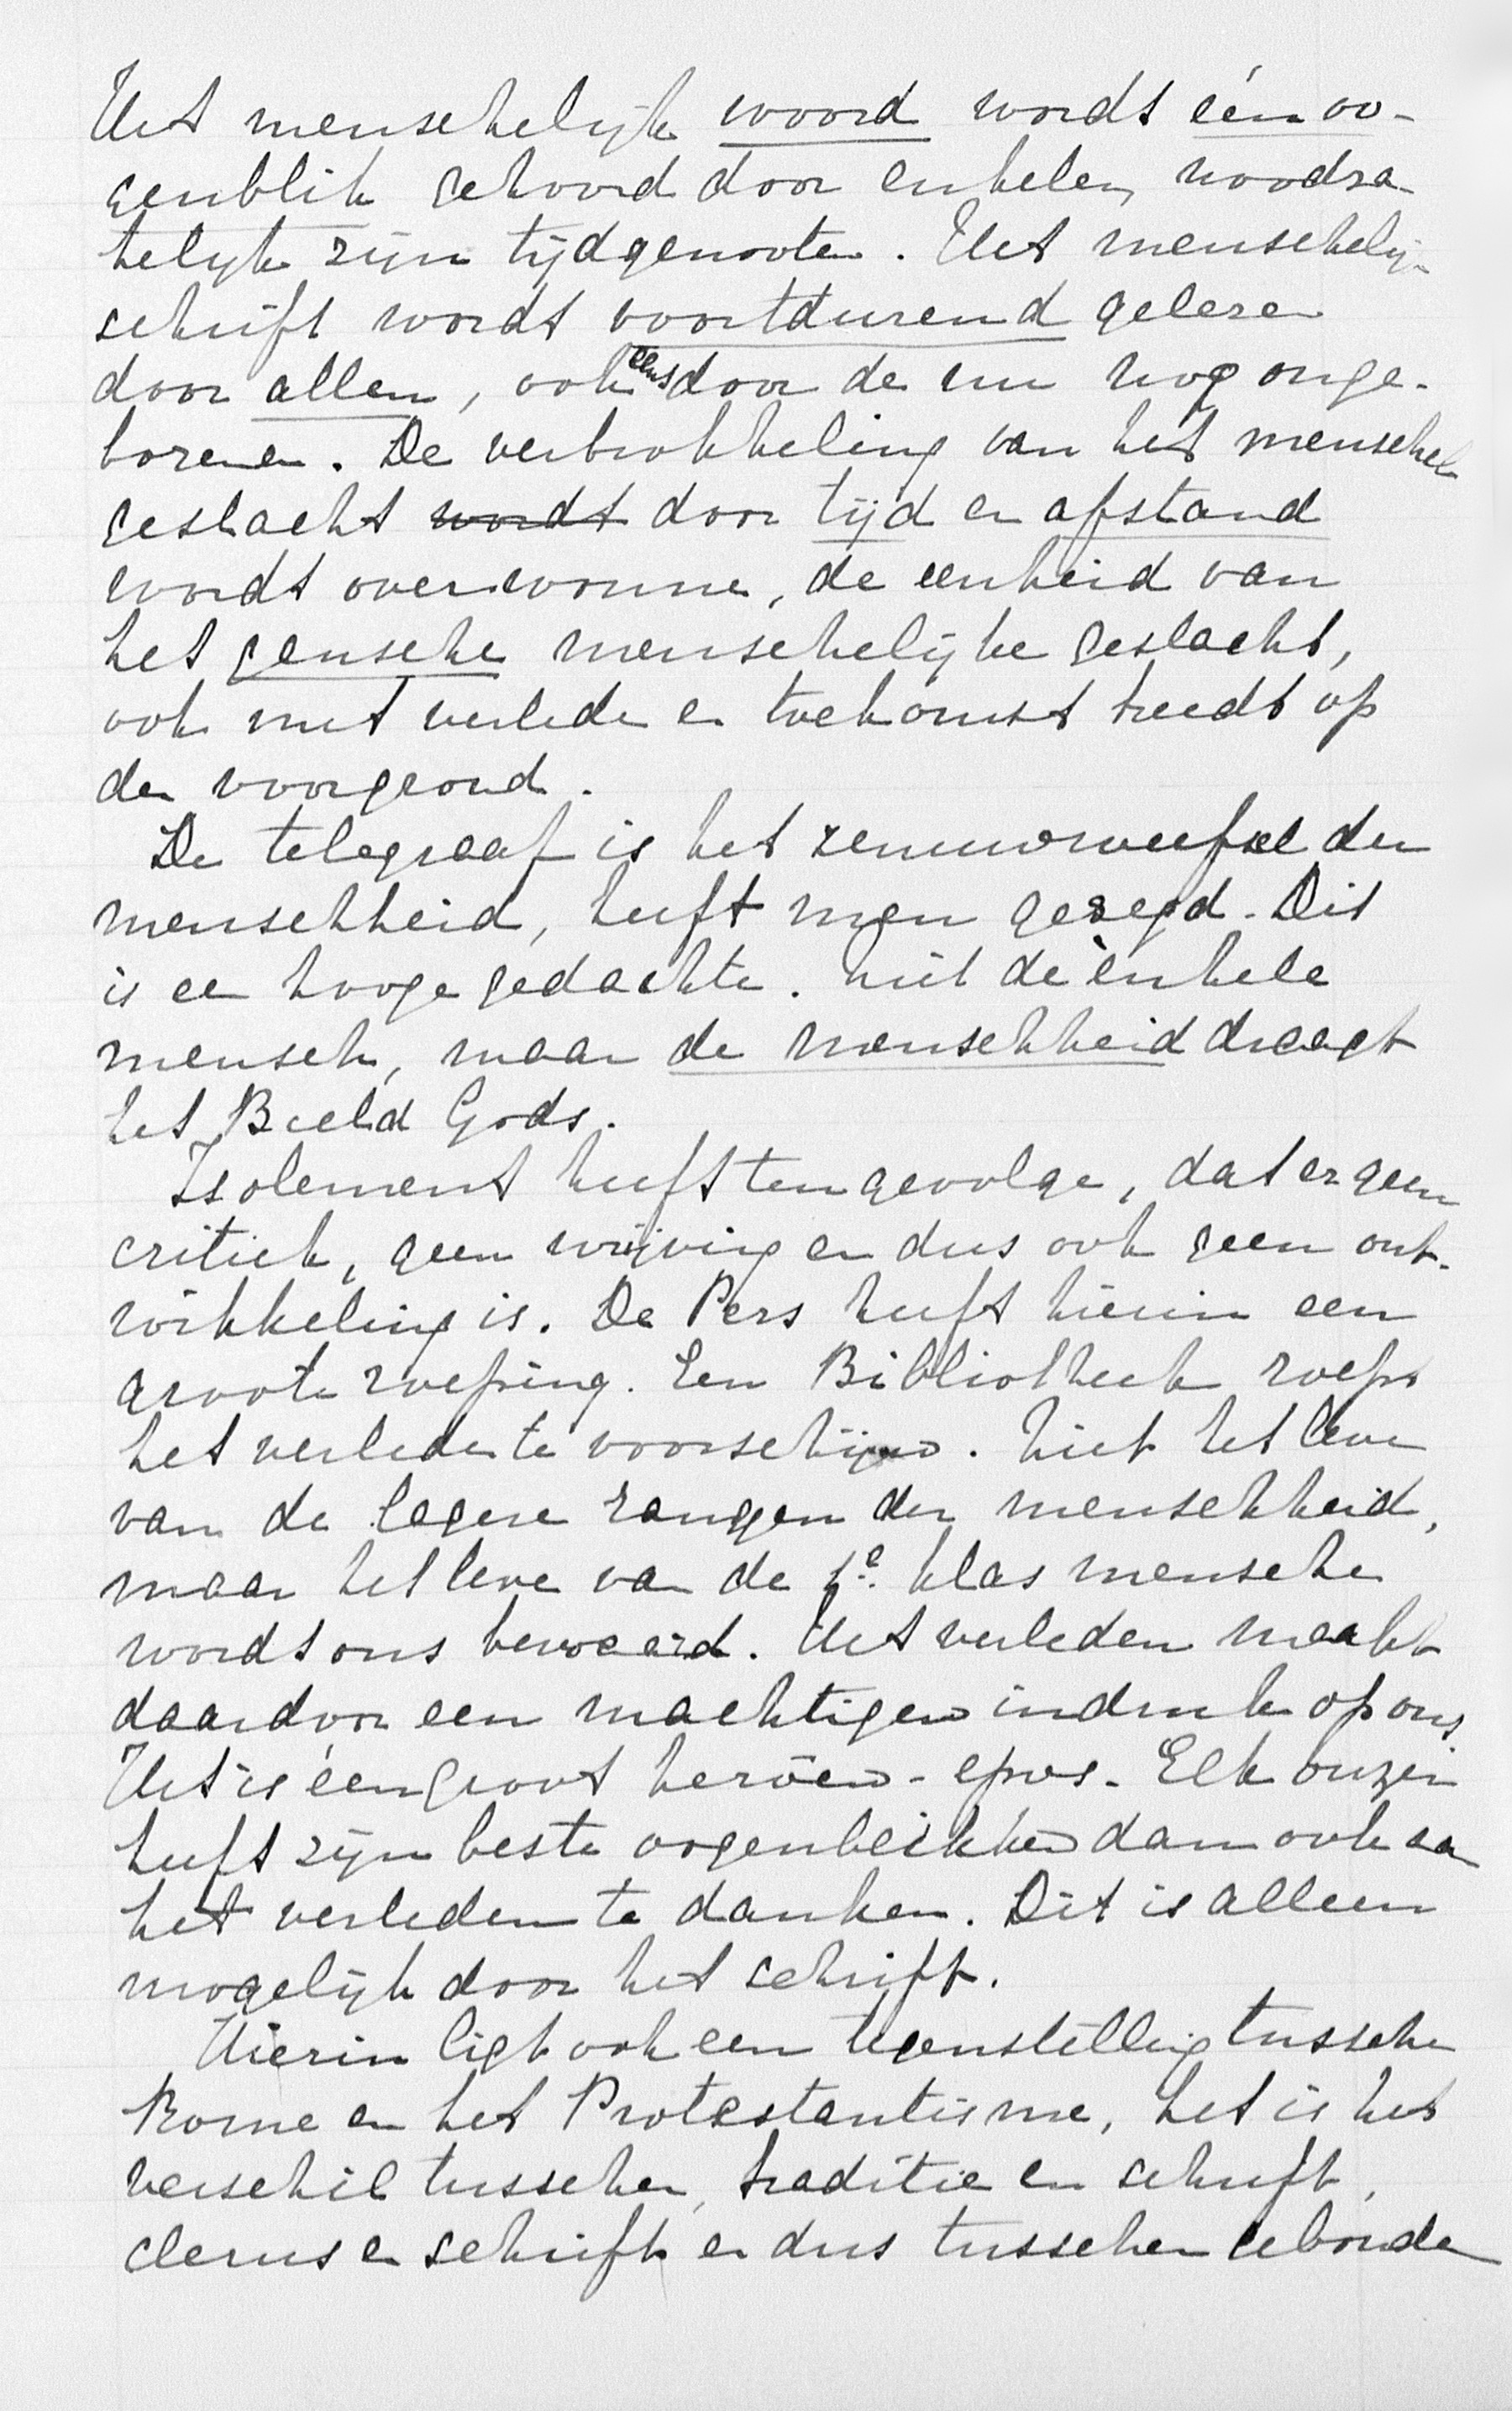 Het menschelijk woord wordt één oo-
genblik gehoord door enkelen, noodza-
kelijk zijn tijdgenooten. Het menschelij-
schrift wordt voortdurend gelezen
door allen, ook eens door de nu nog onge-
borenen. De verbrokkeling van het menschel
geslacht wordt door tijd en afstand
wordt overwonnen, de eenheid van
het gansche menschelijke geslacht,
ook met verleden en toekomst treedt op
den voorgrond.
De telegraaf is het zenuwweefsel der
menschheid, heeft men gezegd. Dit
is een hooge gedachte. Niet de enkele
mensch, maar de menschheid draagt
het Beeld Gods.
Isolement heeft ten gevolge, dat er geen
critiek, geen wrijving en dus ook geen ont-
wikkeling is. De Pers heeft hierin een
groote roeping. Een Bibliotheek roept
het verleden te voorschijn. Niet het leven
van de lagere rangen der menschheid,
maar het leven van de 1e klas menschen
wordt ons bewaard. Het verleden maakt
daardoor een machtigen indruk op ons.
Het is één groot heroën-epos. Elk onzer
heeft zijn beste oogenblikken dan ook aan
het verleden te danken. Dit is alleen
mogelijk door het schrift.
Hierin ligt ook een tegenstelling tusschen
Rome en het Protestantisme, het is het
verschil tusschen traditie en schrift,
clerus en schrift en dus tusschen gebonden